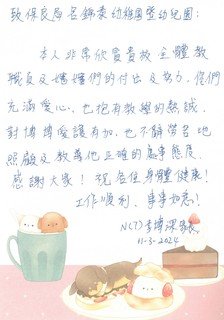 致保良局錦泰幼稚園暨幼兒園:
本人非常欣賞貴校全體教
職員及嬸嬸們的付出及努力,您們
充滿愛心,也抱有教學的熱誠,
對博博愛護有加,也不辭勞苦地
照顧及教導他正確的處事態度.
感謝大家!祝各位身體健康!
工作順利、事事如意!
N(7)李博深
11-3-2024